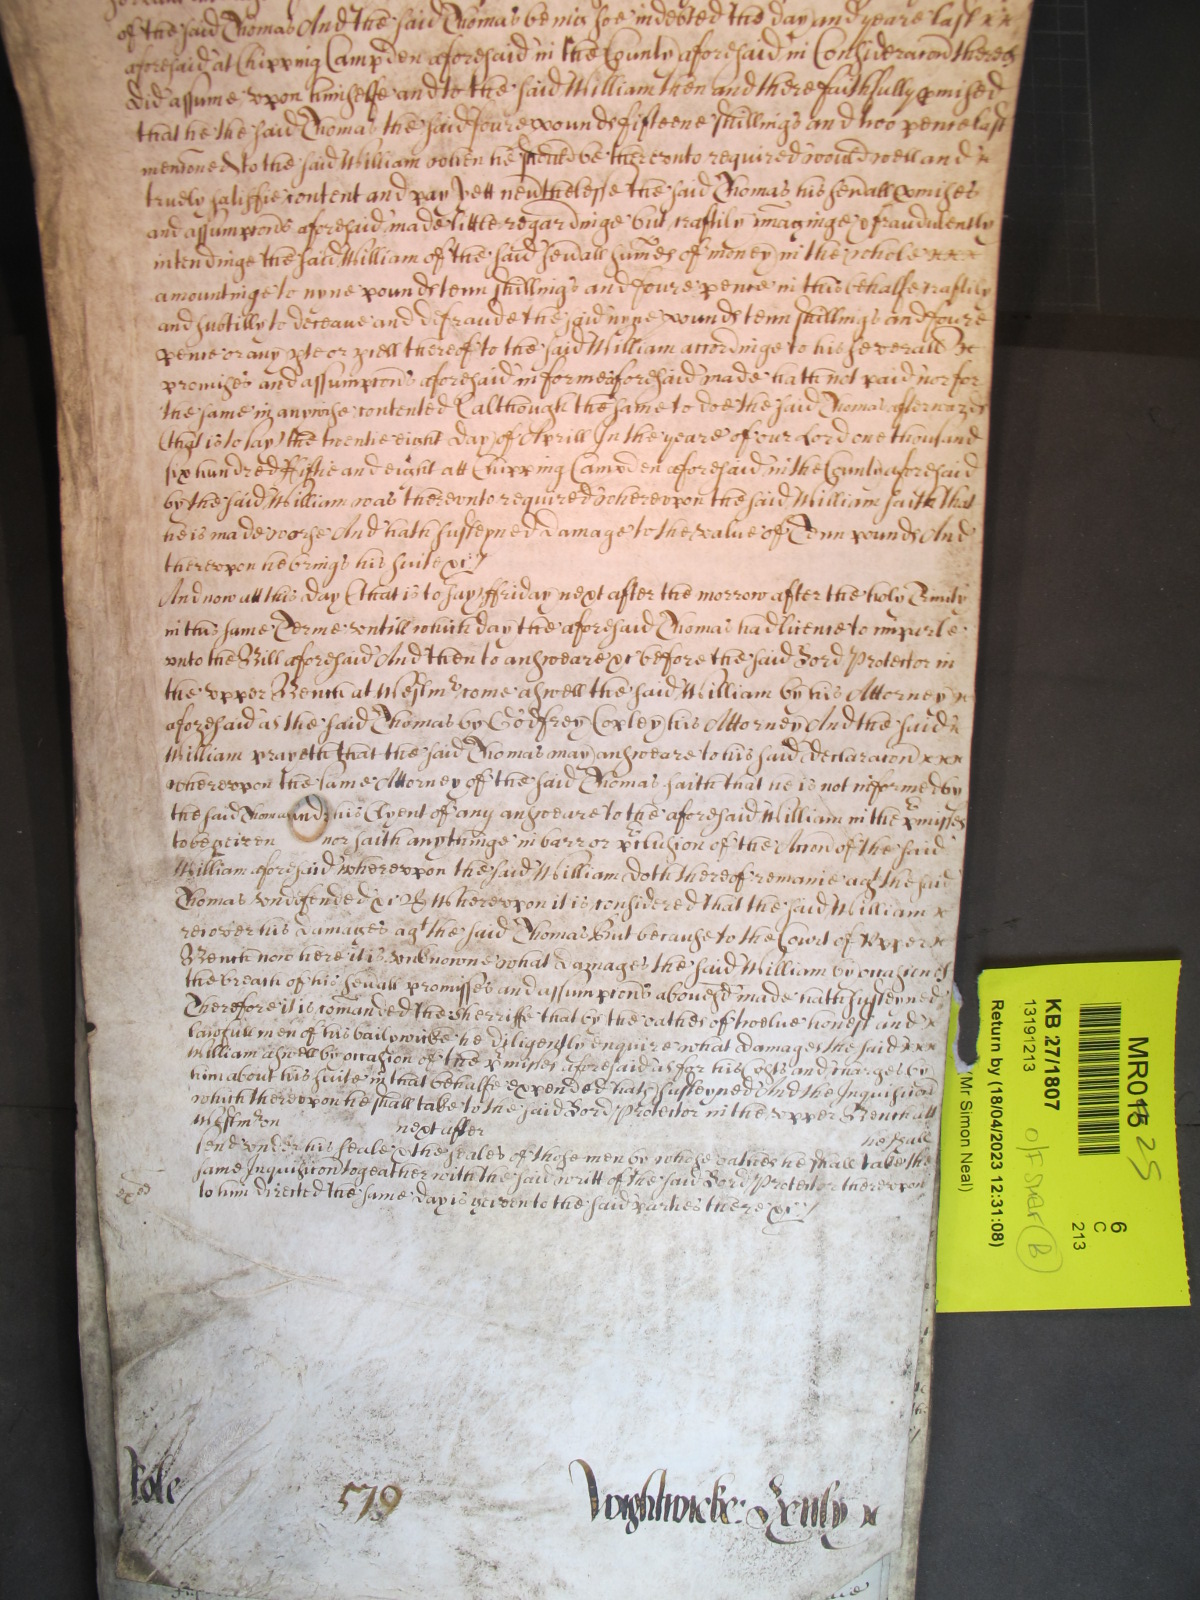 of the said Thomas And the said Thomas being soe indebted the day and yeare last x x
aforesaid at Chipping Campden aforesaid in the County aforesaid in Consideracon thereof
did assume upon himselfe and to the said William then and there faithfully pmised
that he the said Thomas the said foure pounds fifteene shillings and two pence last
menconed to the said William when he should be thereunto required would well and x
truely satisfie content and pay yett nevtheles the said Thomas his sevall pmises
and assumpcons aforesaid made little regardinge but craftily imaginge & fraudulently
intendinge the said William of the said sevall sumes of money in the whole x x x
amountinge to nyne pounds tenn shillings and foure pence in this behalfe craftily
and subtilly to deceave and defraude the said nyne pounds tenn shillings and foure
pence or any pte or pcell thereof to the said William accordinge to his severall x
promises and assumpcons aforesaid in forme aforesaid made hath not paid nor for
the same in anywise contented (although the same to doe the said Thomas afterwards
(that is to say) the twentie eight day of Aprill In the yeare of our Lord one thousand
six hundred fiftie and eight att Chipping Campden aforesaid in the County aforesaid
by the said William was thereunto required whereupon the said William saith that
he is made worse And hath susteyned damage to the value of Tenn pounds And
thereupon he brings his suite &c/
And now att this day (that is to say) ffriday next after the morrow after the holy Trinity
in this same Terme untill which day the aforesaid Thomas had licence to imparle
unto the Bill aforesaid And then to answeare &c before the said Lord Protector in
the Upper Bench at Westmr come aswell the said William by his Attorney x
aforesaid as the said Thomas by Godfrey Coxley his Attorney And the said x
William prayeth that the said Thomas may answeare to his said declaracon x x x
whereupon the same Attorney of the said Thomas saith that he is not informed by
the said Thomas his Clyent of any answeare to the aforesaid William in the pmisses
to be given nor saith anythinge in barr or pclusion of the Accon of the said
William aforesaid whereupon the said William doth thereof remaine agt the said
Thomas undefended &c Whereupon it is considered that the said William x
recover his damages agt the said Thomas But because to the Court of Upper x
Bench now here it is unknowne what damages the said William by occasion of
the breach of his sevall promisses and assumpcons abovesd made hath susteyned
Therefore it is comanded the Sherriffe that by the oathes of twelve honest and x
lawfull men of his bailywicke he diligently enquire what damages the said x x x
William aswell by occasion of the pmises aforesaid as for his Costs and charges by
him about his suite in that behalfe expended hath susteyned And the Inquisicon
which thereupon he shall take to the said Lord Protector in the upper Bench att
Westm on next after he shall
send under his seale & the seales of those men by whose oathes he shall take the
same Inquisicon togeather with the said writt of the said Lord Protector thereupon
to him directed the same day is given to the said parties there &c/
Role 579 Wightwicke: Trinity x
MR015 25
6
C
213
KB 27/1807
13191213
O/F Sher (B)
Return by (18/04/2023 12:31:08)
(Mr Simon Neal)